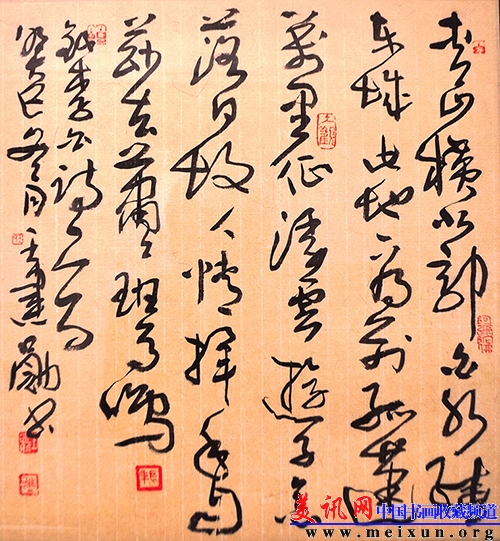 青山横北郭白水绕
东城此地一为别孤蓬
萬里征浮雲游子意
落日故人情挥手自
兹去萧萧班马鸣
錄李白诗一首
癸巳冬月 勋书
美讯网 中国书画收藏频道
www.meixun.org